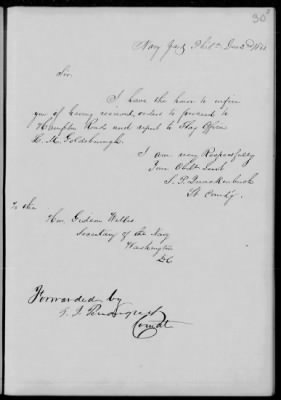 30
Navy Yard Phila Dec 2nd 1861
Sir
I have the honor to inform
you of having received orders to proceed to
Hampton Roads and report to Flag Officer
L. M. Goldsborough.
I am very Respectfully
Your Obdt Servt
S. P. Quackenbush
Lt Comd'g.
To the
Hon. Gideon Welles
Secretary of the Navy
Washington
DC
Forwarded by
Comdt